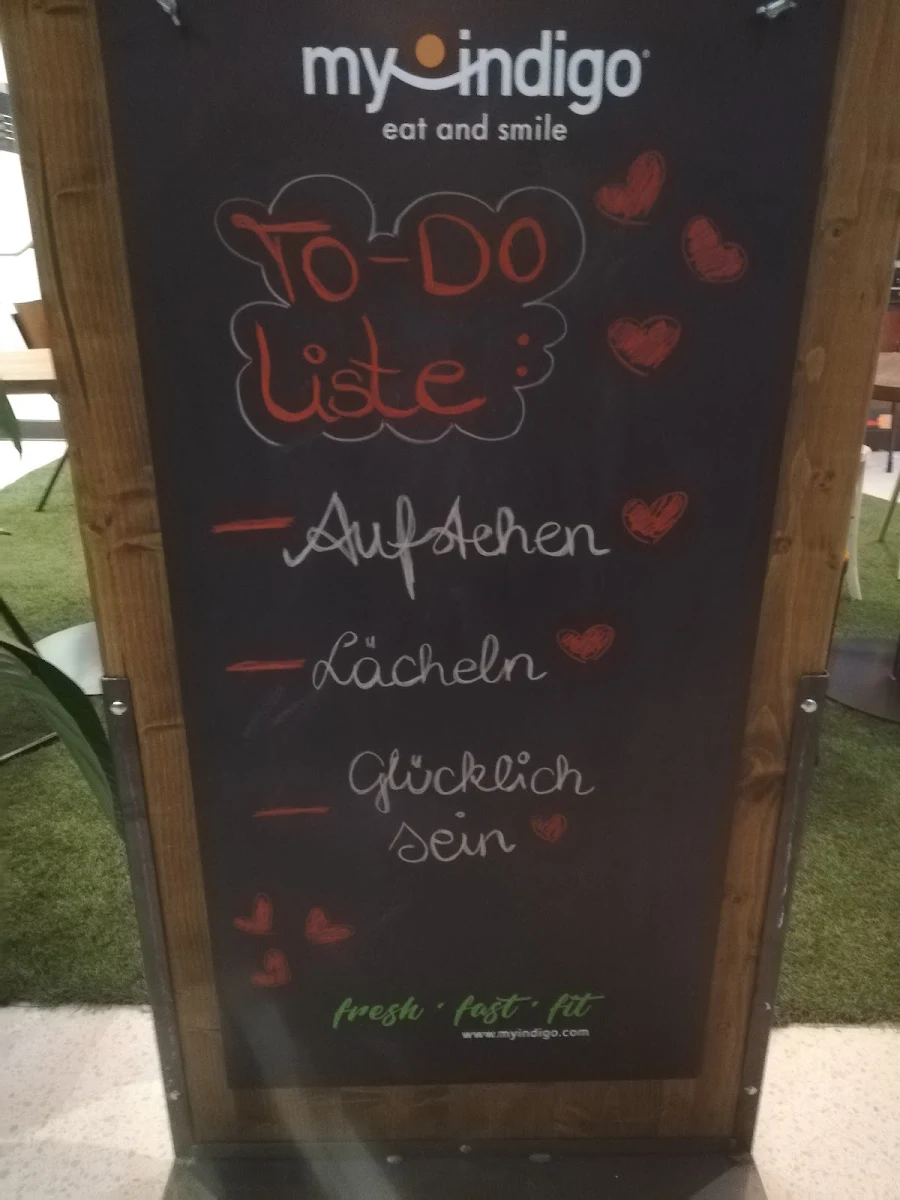 my indigo
eat and smile
To-Do
Liste :
- Aufstehen
- Lächeln
- Glücklich
sein
fresh · fast · fit
www.myindigo.com